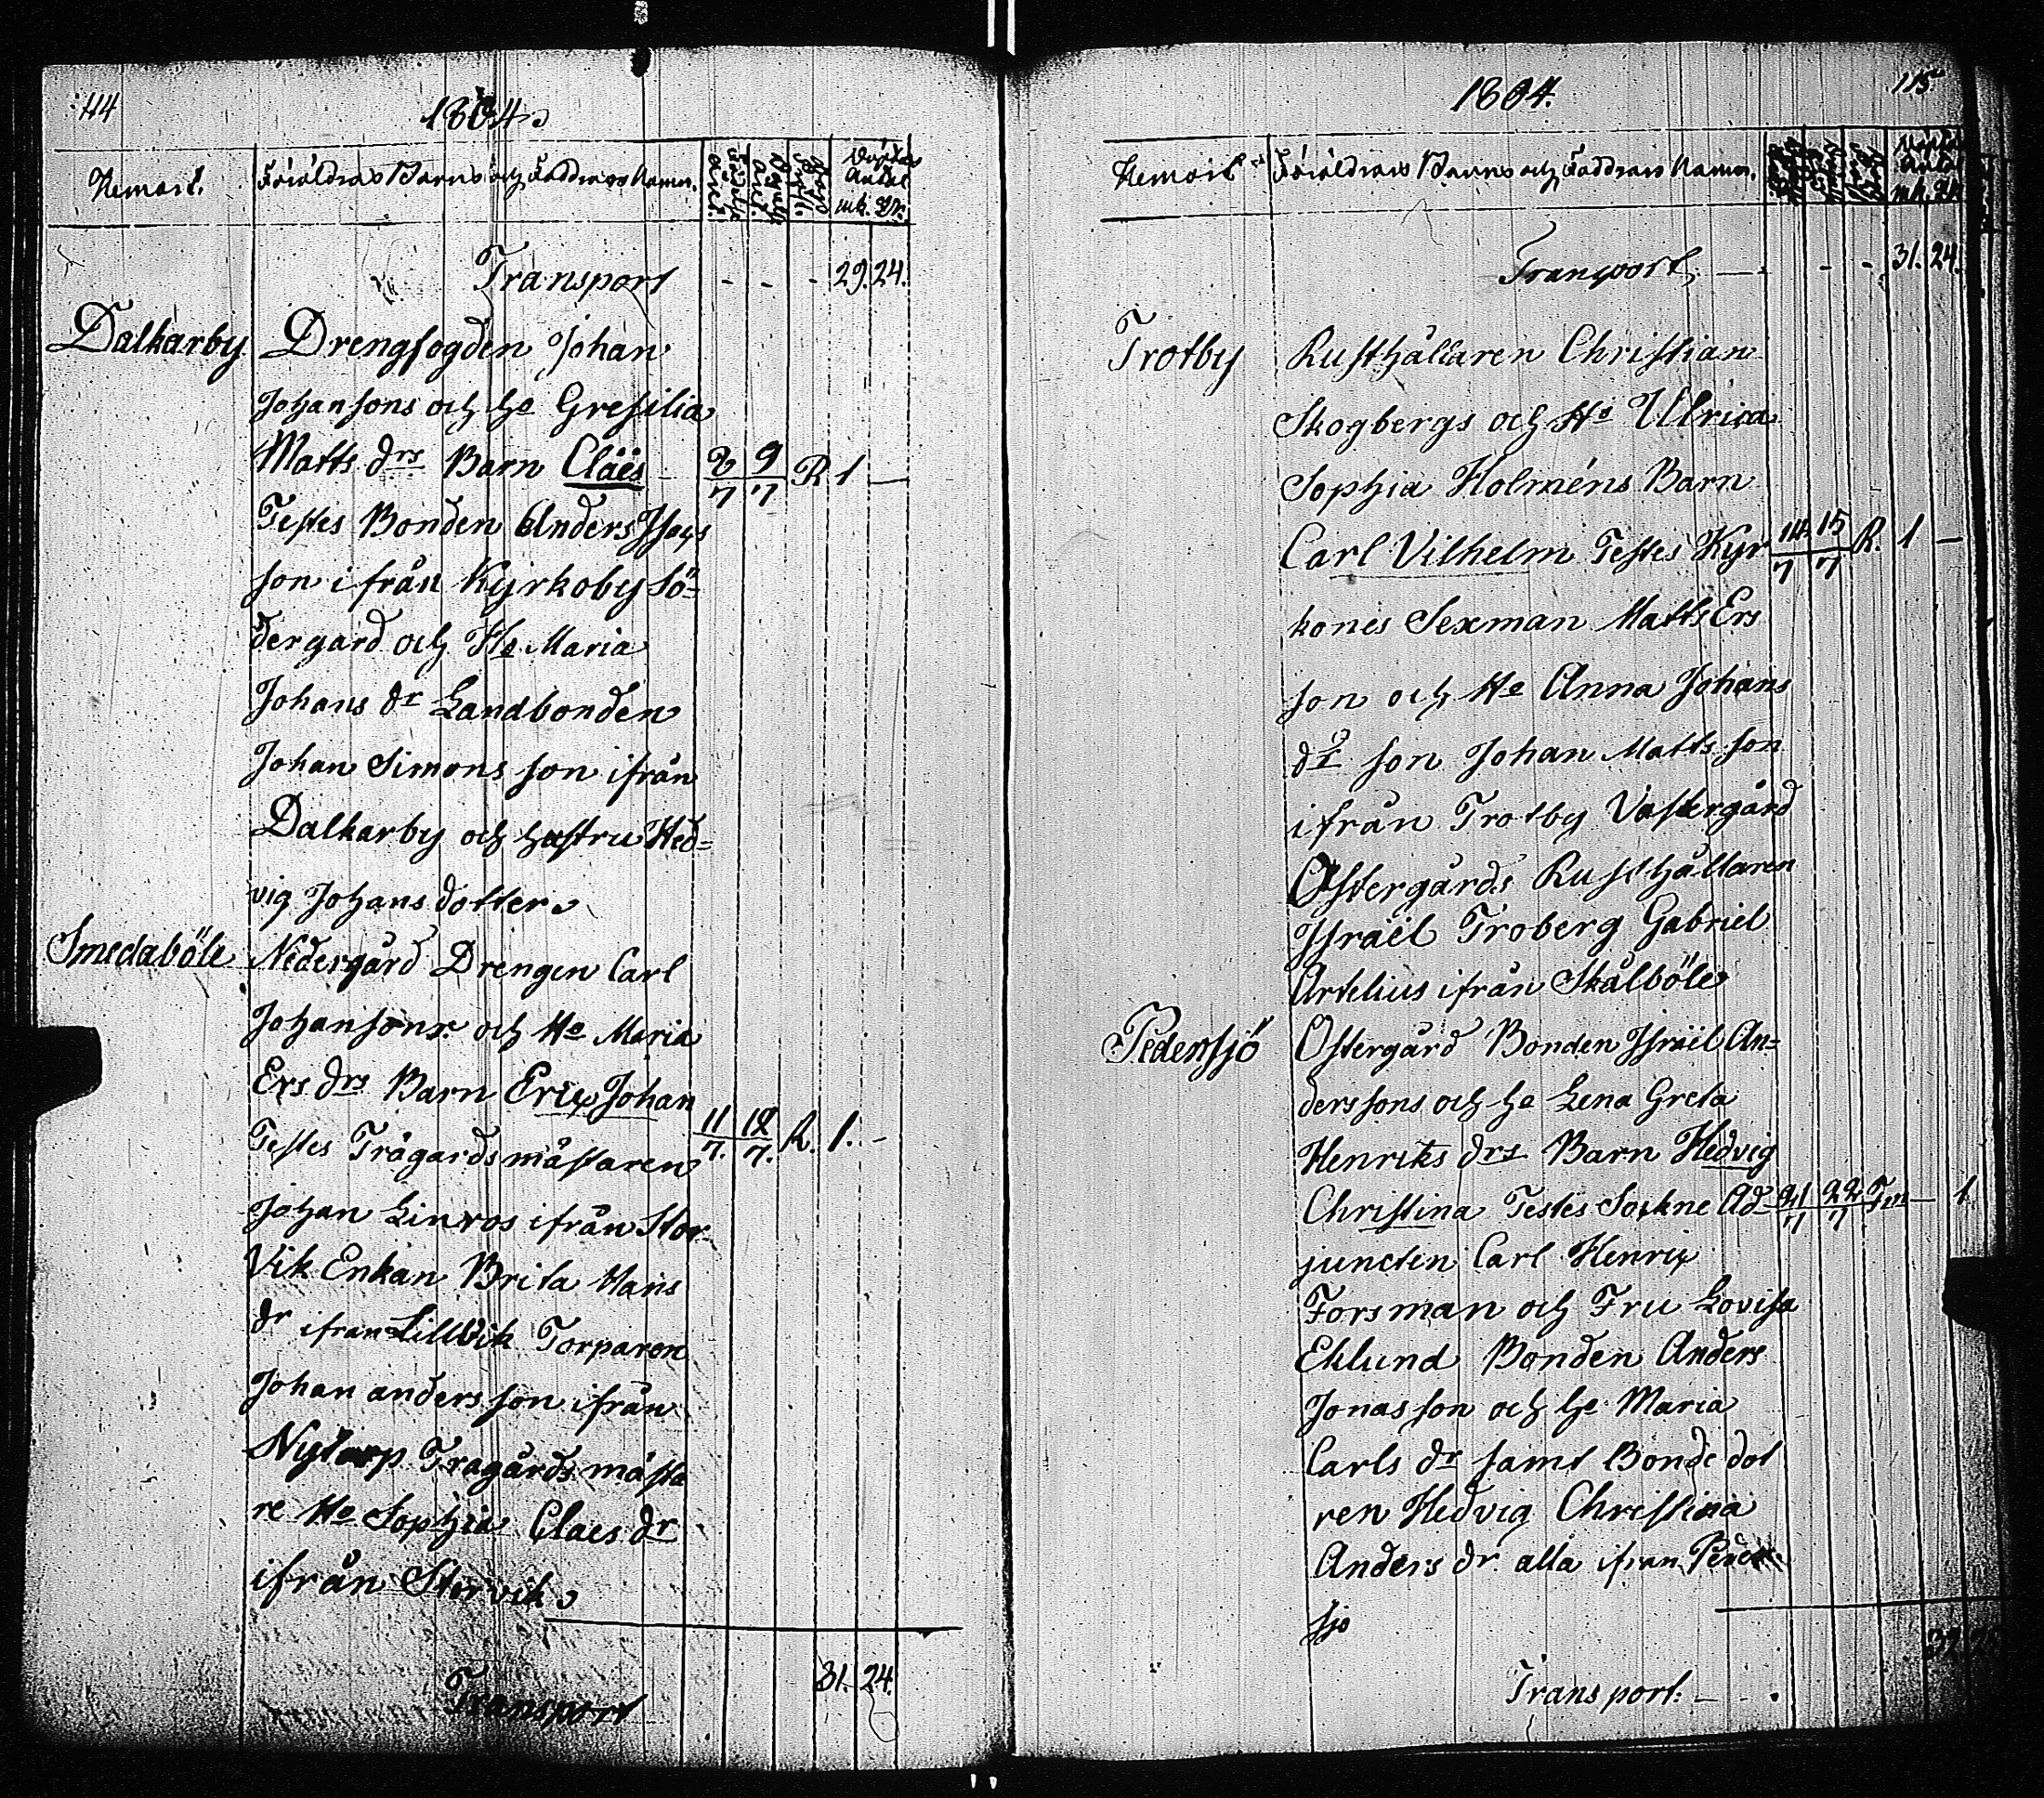 114
1804.
Hemort. Föräldrars Barns och Faddrars Namn. Födelse Dopets mk. Qv.
Transport - - - 29. 24.
Dalkarby Drengfogden Johan
Johansons och he Gresilia
Matts drs Barn Claës 2/7 9/7 R 1 —
Testes Bonden Anders
son ifrån Kyrkoby Sö=
dergard och He Maria
Johans dr Landbonden
Johan Simons son ifrån
Dalkarby och hustru Hed=
vig Johans dotter.
Smedaböle Nedergård Drengen Carl
Johansons och He Maria
Ers drs Barn Eric Johan
Testes Trägardsmästaren 11/7. 12/7. R. 1. -
Johan Linros ifrån Stor
Vik Enkan Brita Hans
dr ifran Lillvik Torparen
Johan anders son ifrån
Nytorp Tragårdsmästa
re He Sophia Claes dr
ifrån Storvik.
31. 24.
Transport
115.
1804.
Hemort Föräldrars Barns och Faddrars Namn. mk.
Transport, — - - 31. 24.
Trotby Rusthållaren Christian
Skogbergs och He Ulrica
Sophia Holméns Barn
Carl Vilhelm Testes Kyr 14/7 15/7 R. 1 —
kones Sexman Matts Ers
son och He Anna Johans
dr son Johan Matts son
ifrån Trotby Vastergård
Ostergårds Rusthållaren
Israël Troberg Gabriel
Artelius ifrån Skålböle
Pedersjö Ostergård Bonden Israël An=
ders sons och he Lena Greta
Henriks drs Barn Hedvig
Christina Testes Sockne Ad 21/7 22/7 — 1
juncten Carl Henric
Forsman och Fru Lovisa
Eklund Bonden Anders
Jonas son och he Maria
Carls dr samt Bonde dot
ren Hedvig Christina
Anders dr alla ifran
sjo
Transport: — -